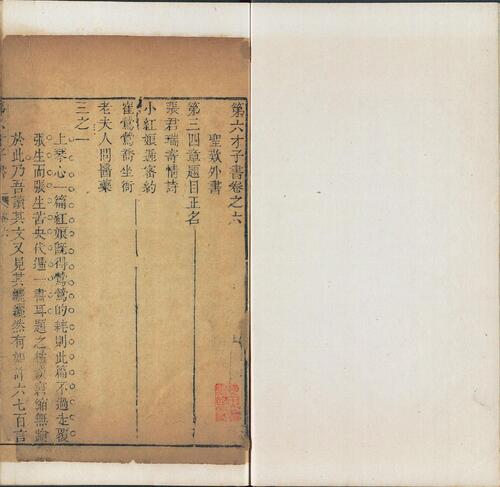 第六才子書卷之六
聖歎外書
第三四章題目正名
張君瑞寄情詩
小紅娘遞密約
崔鶯鶯喬坐衙
老夫人問醫藥
三之一
上琴心一篇紅娘既得鶯鶯的耗則此篇不過走覆
張生而張生苦央代遞一書耳題之枯淡窘縮無逾
於此乃吾讀其文又見其纚纚然有如許六七百言